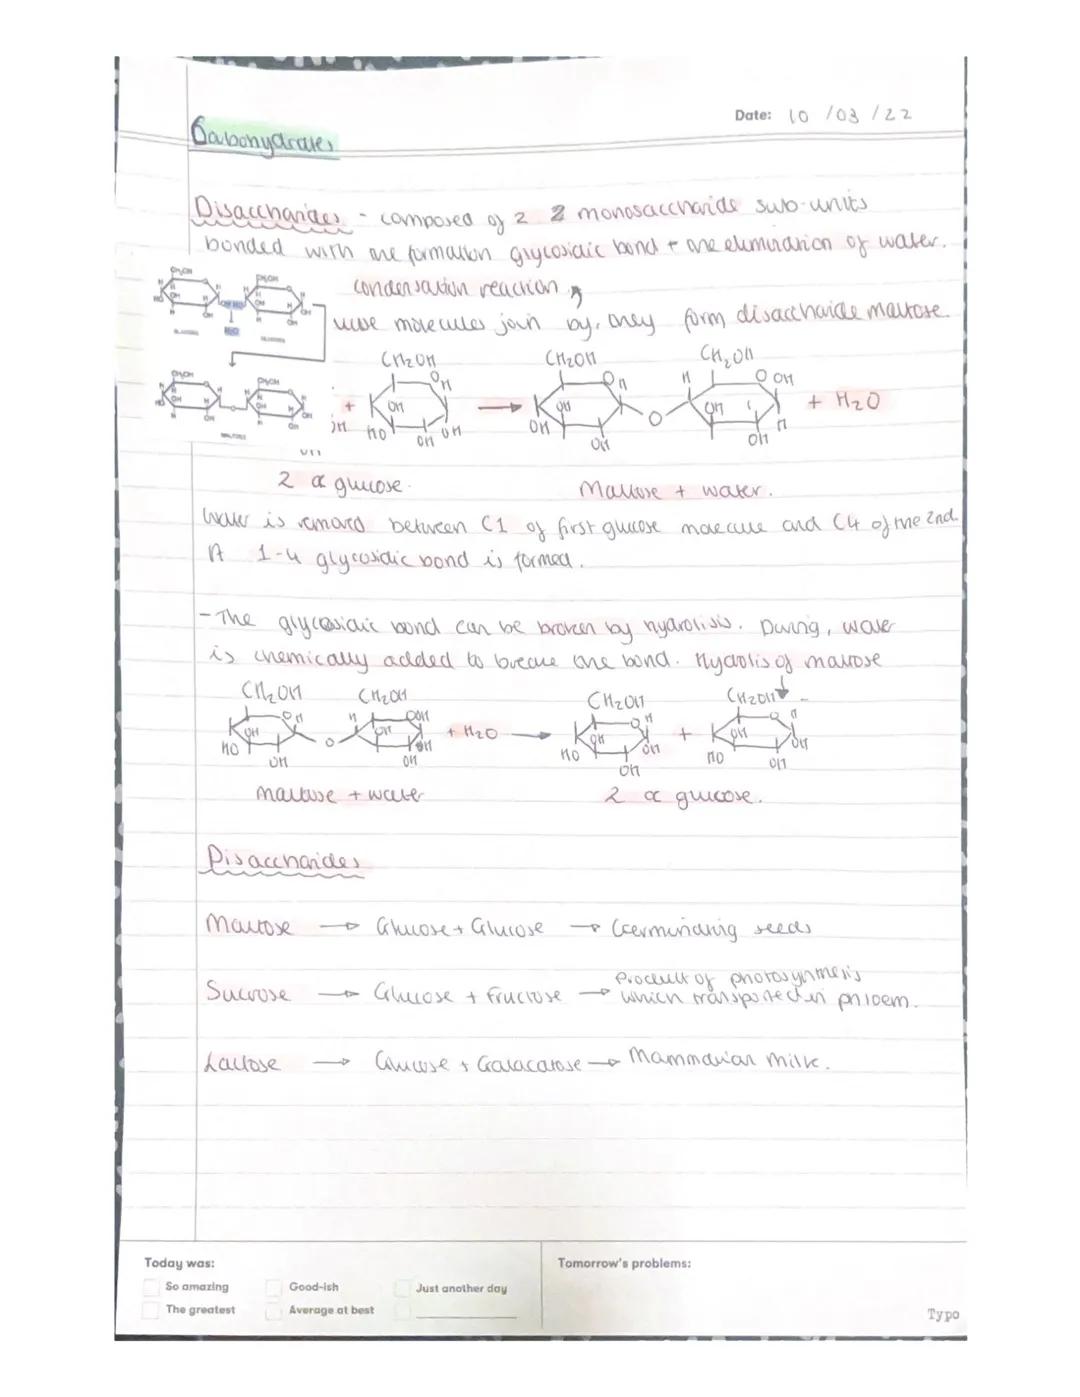 Date: 10 / 03 / 22
Cabohydrates
Disaccharides - composed of 2 2 monosaccharide sub-units
bonded with the formation glycosidic bond + the elimination of water.
condensation reaction
molecules join by, they form disaccharide maltose.
CH₂OH CH₂OH CH₂OH
+ → O + H₂O
2 α glucose. Maltose + water.
Water is removed between C1 of first glucose molecule and C4 of the 2nd.
A 1-4 glycosidic bond is formed.
- The glycosidic bond can be broken by hydrolisis. During, water
is chemically added to break the bond. Hydrolis of maltose
CH₂OH CH₂OH CH₂OH CH₂OH
HO O + H₂O → HO + HO
maltose + water 2 α glucose.
Disaccharides
Maltose → Glucose + Glucose → Germinating seeds
Sucrose → Glucose + Fructose → Product of photosynthesis
which transported in phloem.
Lactose → Glucose + Galacatose → Mammalian milk.
Today was: Tomorrow's problems:
So amazing Good-ish Just another day
The greatest Average at best
Typo